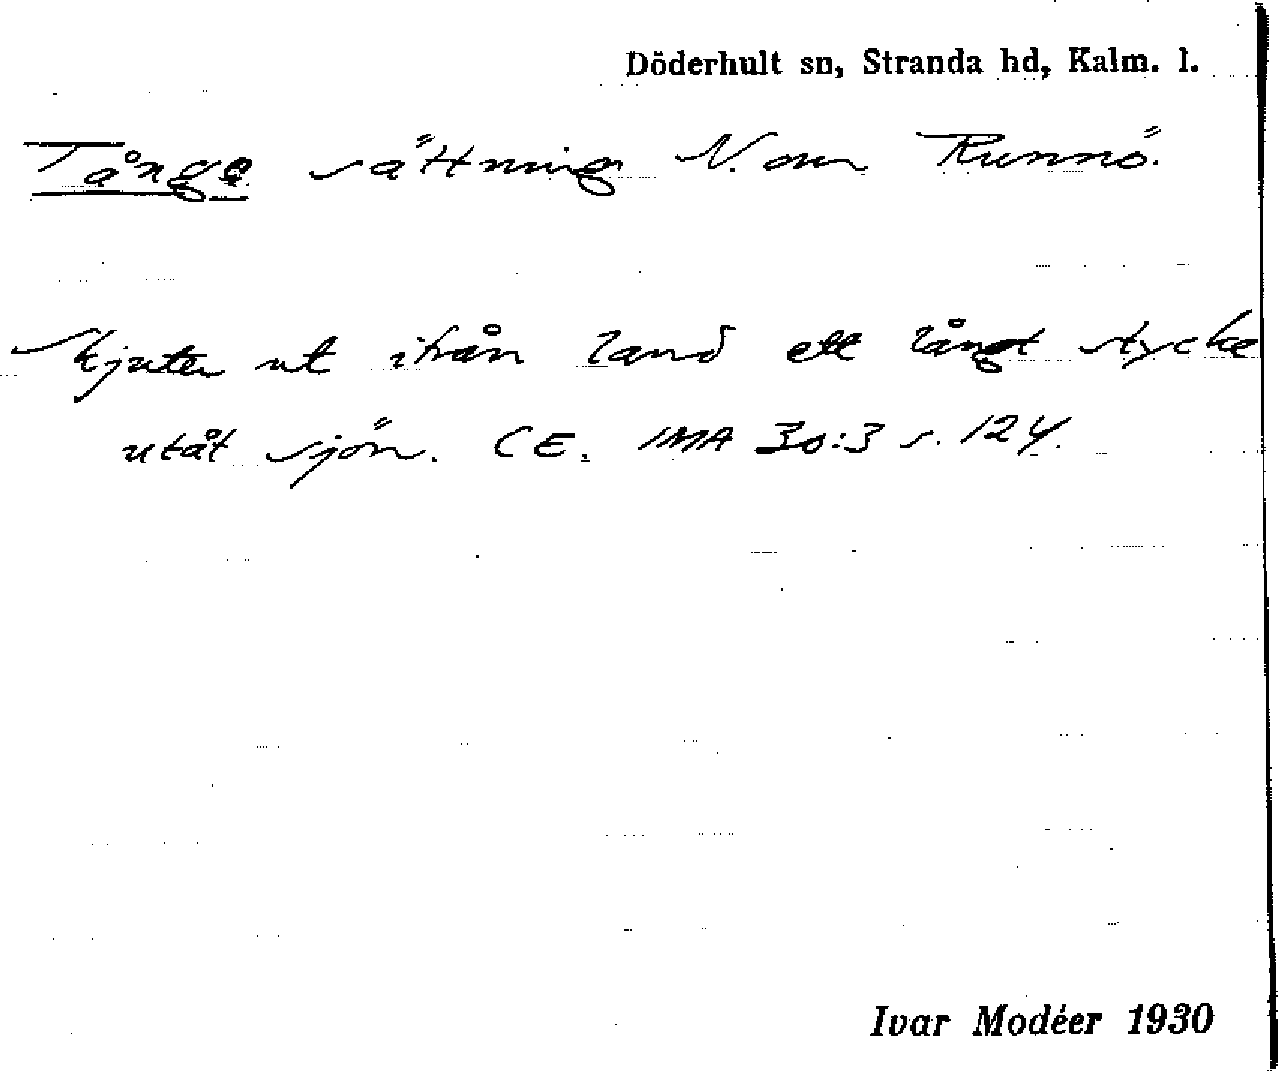 Döderhult sn, Stranda hd, Kalm. l.
Tånge sättning N. om Runnö.
Skjuter ut ifrån land ett långt stycke
utåt sjön. CE. IMA 30:3 s. 124.
Ivar Modéer 1930